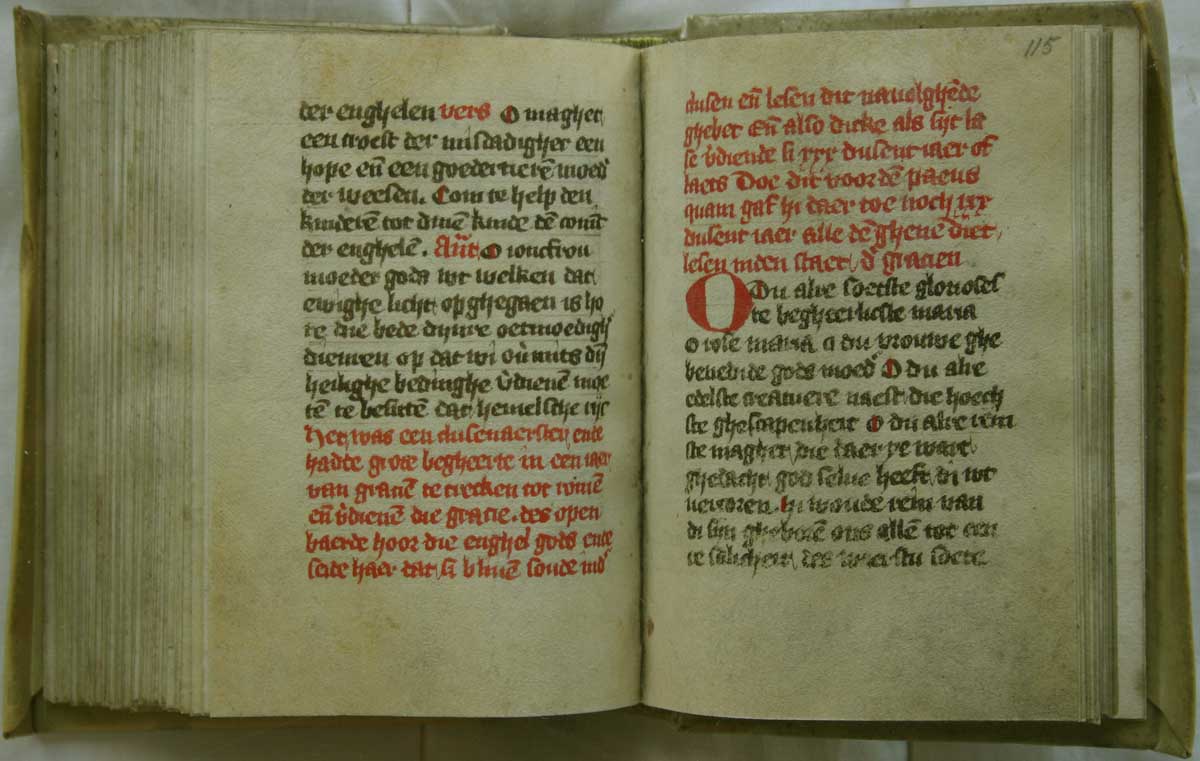 der enghelen vers O maghet
een troest der misdadigher een
hope en̄ een goedertierē moed'
der weesen. Com te help den
kinderē tot dinē kinde dē cōnīc
der enghelē. Aūt O ioncfrou
moeder gods wt welken dat
ewighe licht op ghegaen is ho
re die bede dijnre oetmoedigh'
dienren op dat wi ou̅mits dij̄
heilighe bedinghe v̄dienē moe
tē te besittē dat hemelsche rijc
Het was een clusenaerster ende
hadde grote begheerte in een iaer
van grauē te trecken tot romē
en̄ v̄dienē die gracie. des open
baerde hoor die enghel gods ende
seide haer dat si bliuē soude in d'
115
clusen en̄ lesen dit nauolghēde
ghebet En̄ also dicke als sijt la
se v̄diende si xxx dusent iaer of
laets Doe dit voor dē paeus
quam gaf hi daer toe noch xxx
dusent iaer alle dē ghenē diēt
lesen inden staet d' gracien
O Du alre soetste glorioses
te begheerlicste maria
o wie maria o du vrouwe ghe
benedide gods moed' O du alre
edelste creatuere naest die hoech
ste ghescapenheit O du alre rein
ste maghet die daer ye wart
ghedacht god selue heeft di wt
vercoren. hi woude rein van
di sijn gheborē ons allē tot een
re salicheit des weerstu soete